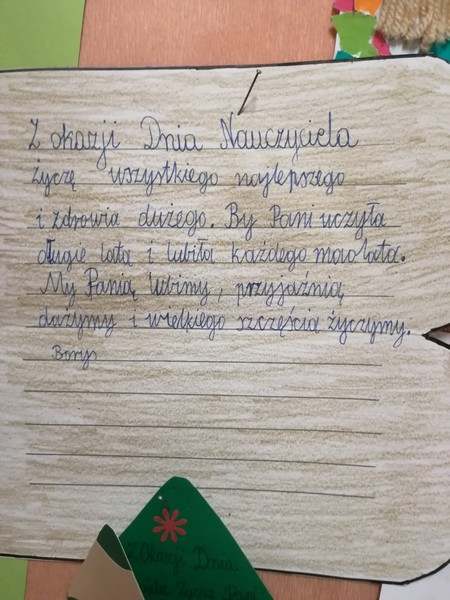 Z okazji Dnia Nauczyciela
życzę wszystkiego najlepszego
i zdrowia dużego. By Pani uczyła
długie lata i lubiła każdego małolata.
My Panią lubimy, przyjaźnią
dażymy i wielkiego szczęścia życzymy.
Borys
Z Okazji Dnia
Życzę Pani